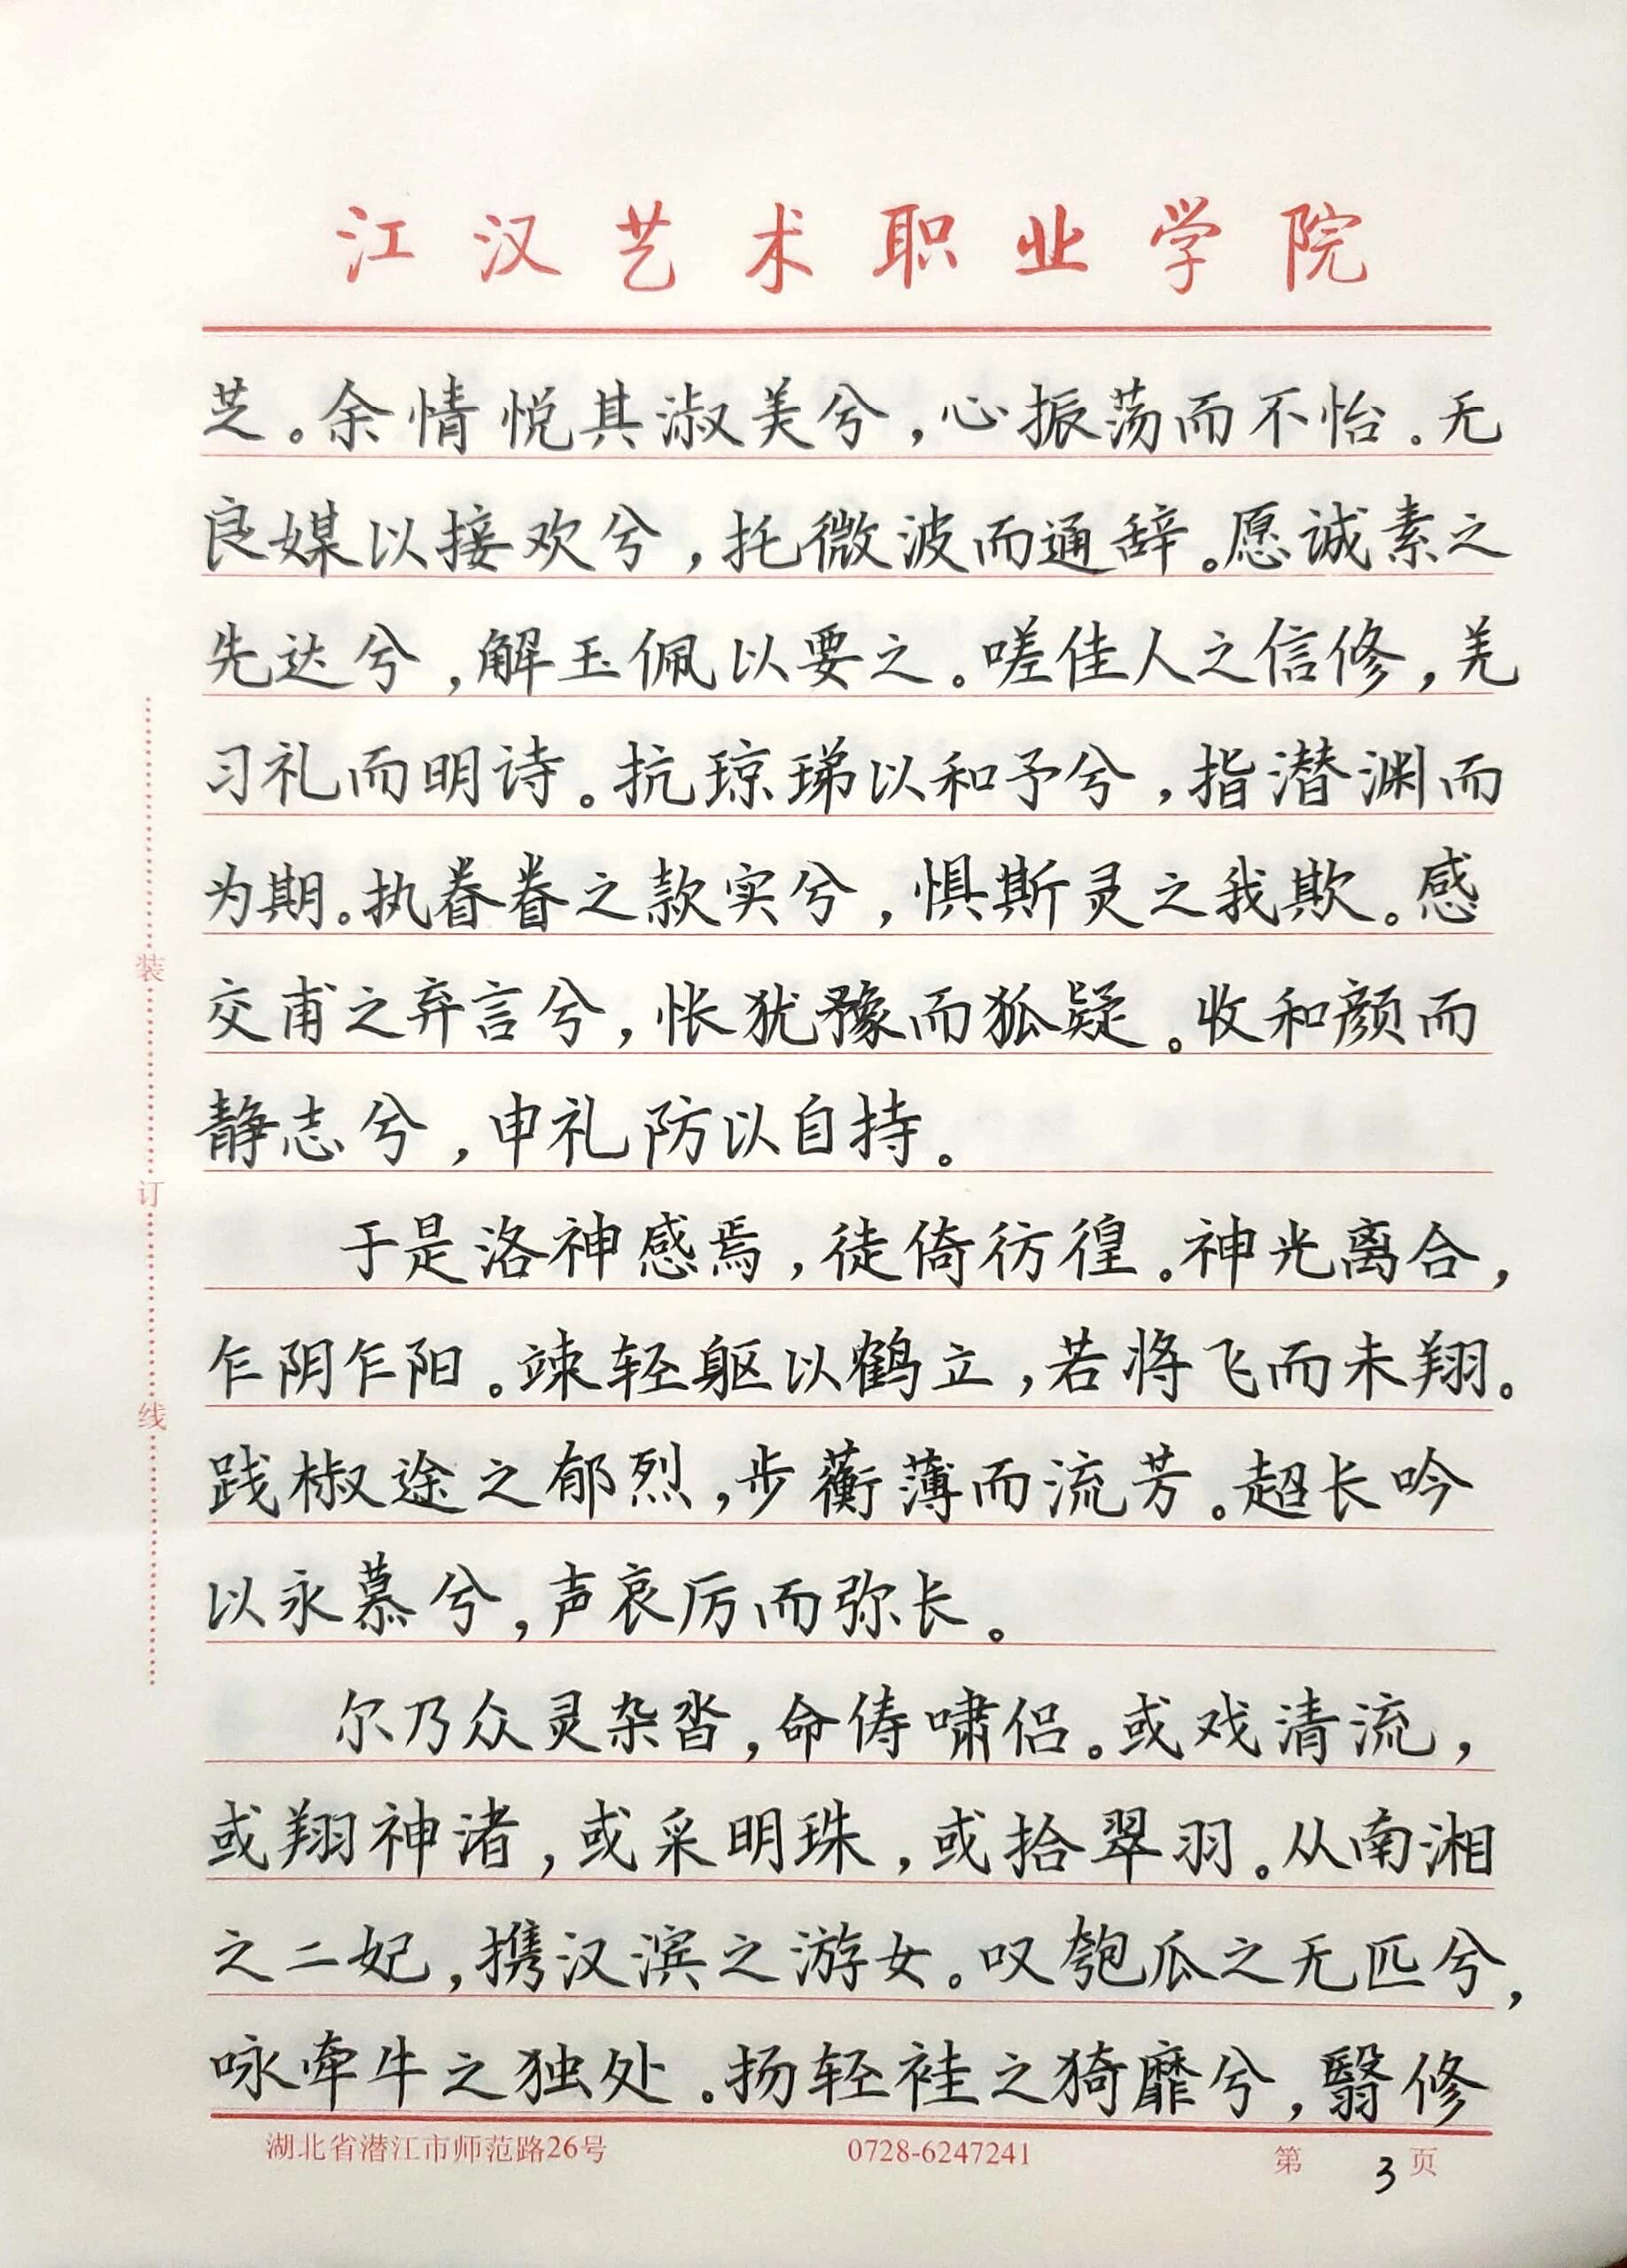 江汉艺术职业学院
芝。余情悦其淑美兮，心振荡而不怡。无
良媒以接欢兮，托微波而通辞。愿诚素之
先达兮，解玉佩以要之。嗟佳人之信修，羌
习礼而明诗。抗琼珶以和予兮，指潜渊而
为期。执眷眷之款实兮，惧斯灵之我欺。感
交甫之弃言兮，怅犹豫而狐疑。收和颜而
静志兮，申礼防以自持。
于是洛神感焉，徒倚彷徨。神光离合，
乍阴乍阳。竦轻躯以鹤立，若将飞而未翔。
践椒途之郁烈，步蘅薄而流芳。超长吟
以永慕兮，声哀厉而弥长。
尔乃众灵杂沓，命俦啸侣。或戏清流，
或翔神渚，或采明珠，或拾翠羽。从南湘
之二妃，携汉滨之游女。叹匏瓜之无匹兮，
咏牵牛之独处。扬轻袿之猗靡兮，翳修
装
订
线
湖北省潜江市师范路26号 0728-6247241 第 3 页